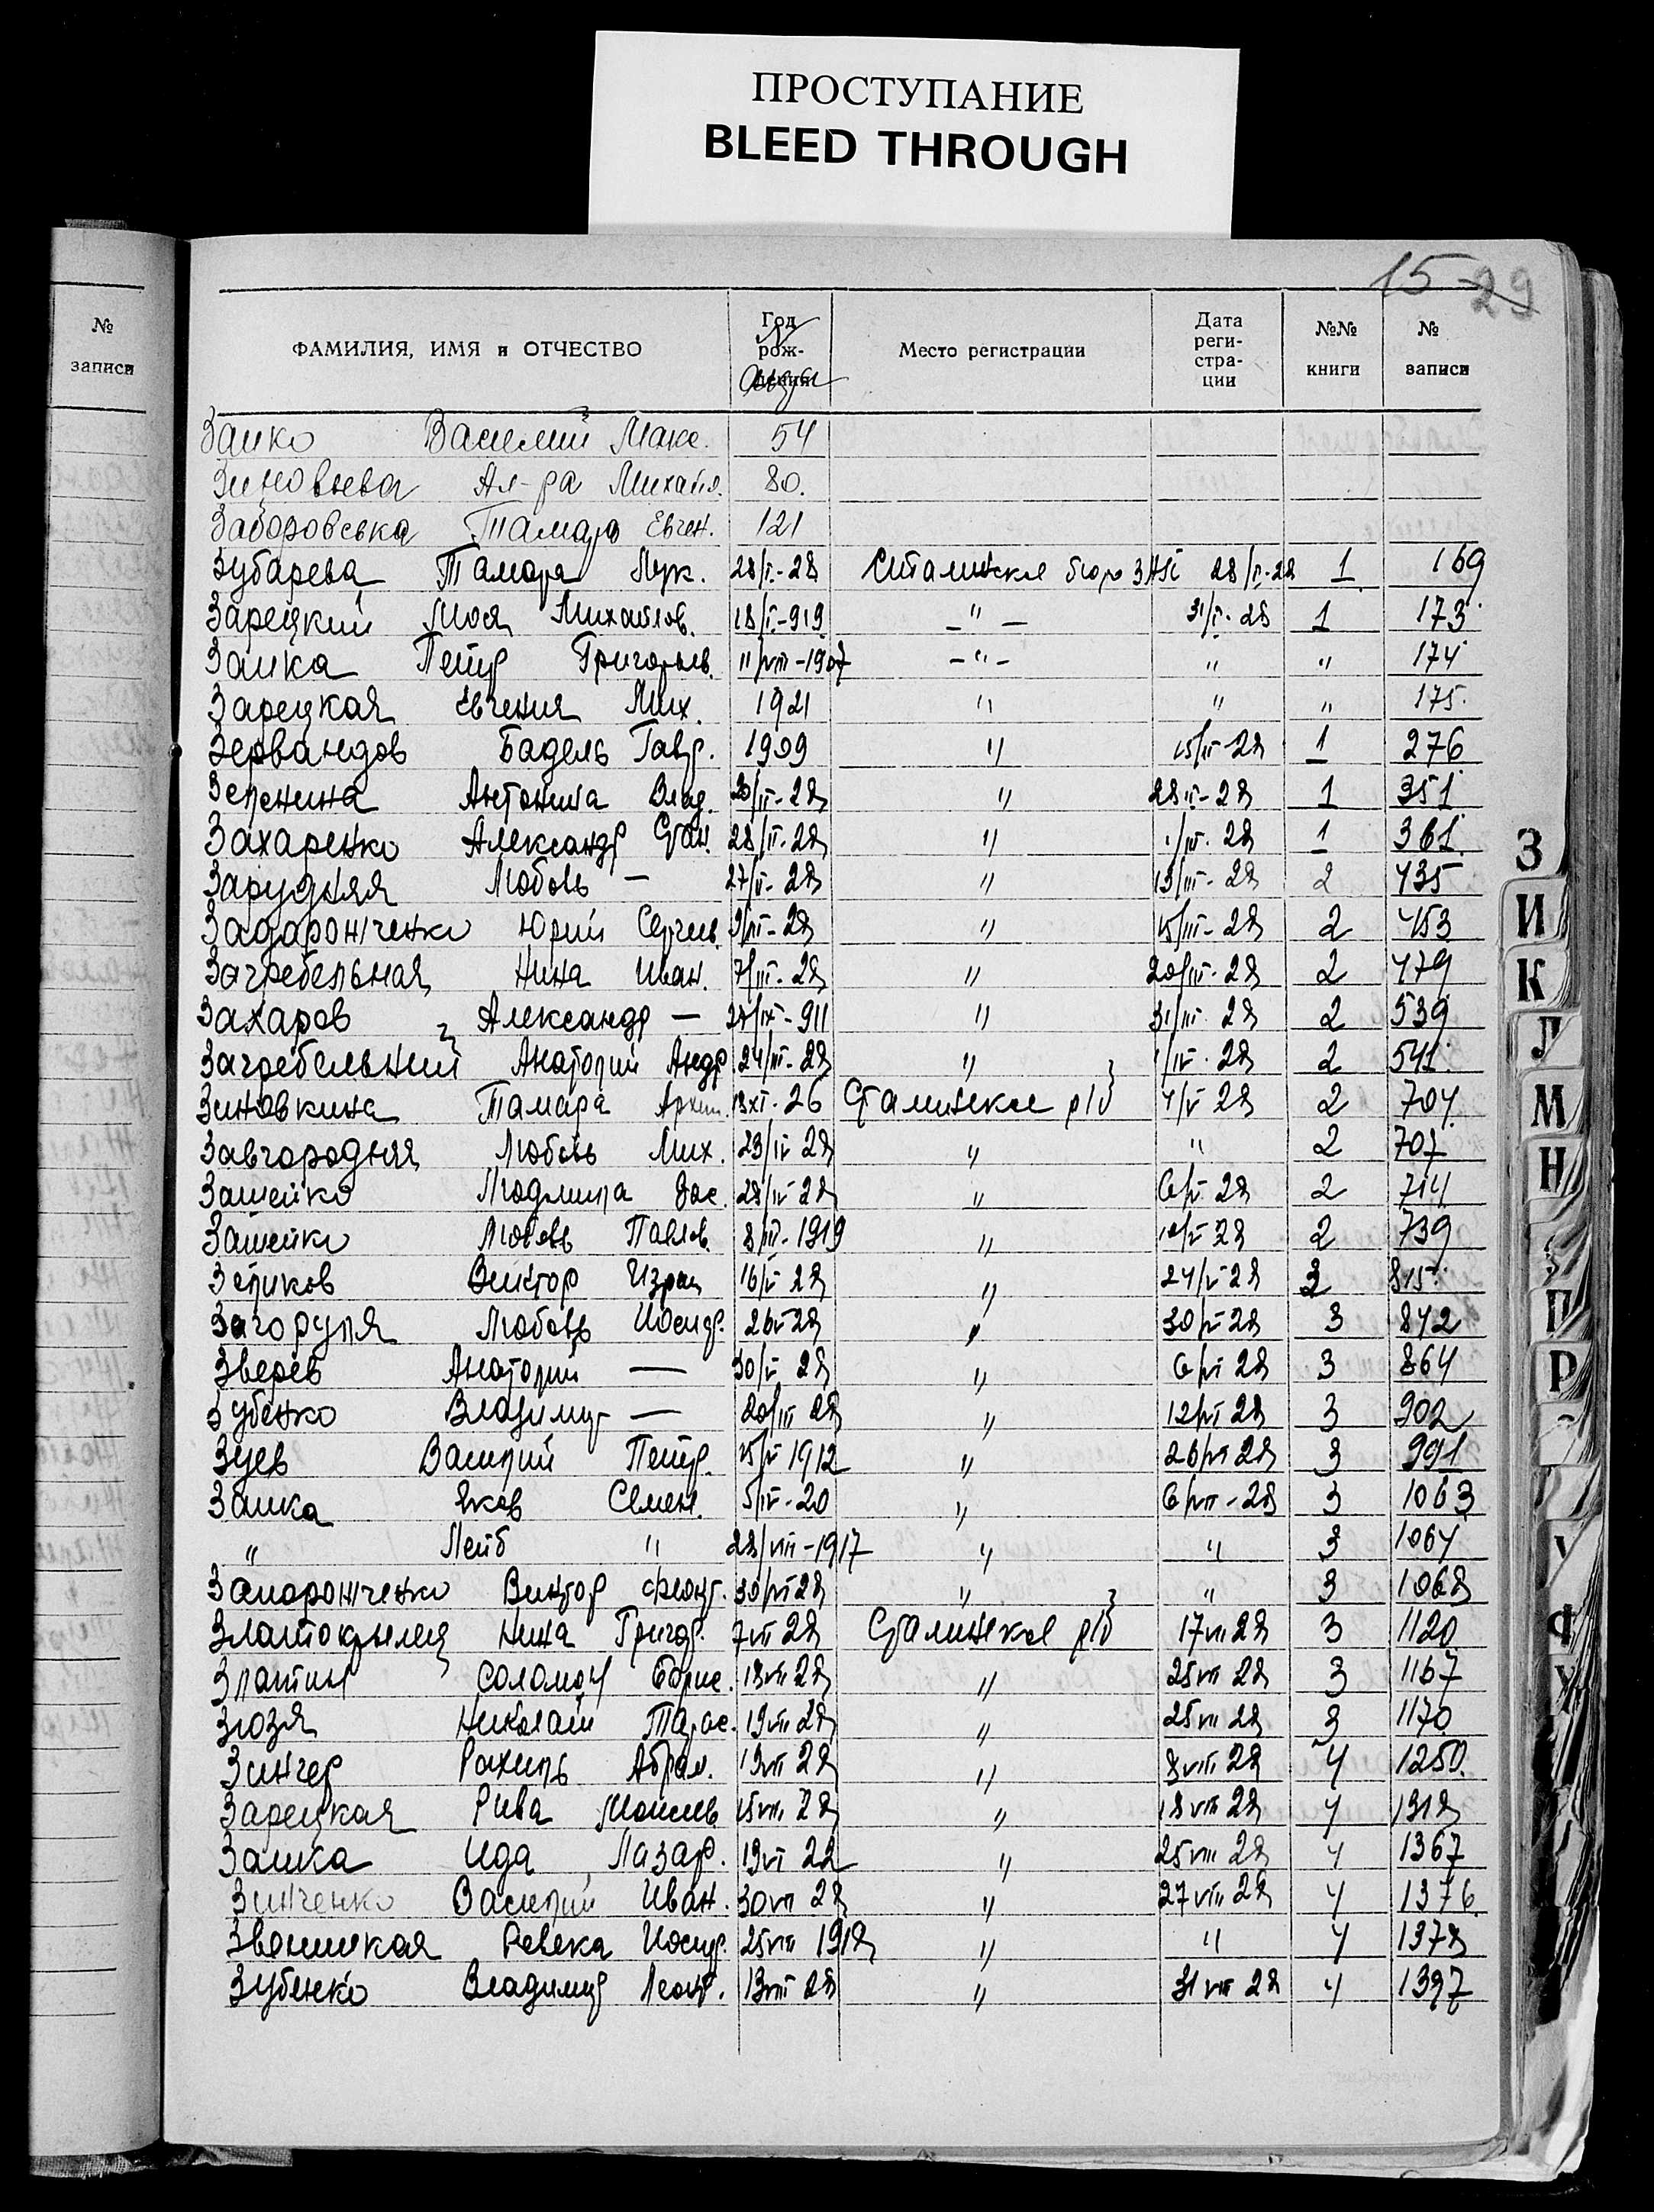 ПРОСТУПАНИЕ
BLEED THROUGH
15 29
№ записи
ФАМИЛИЯ, ИМЯ и ОТЧЕСТВО Год рож- Место регистрации Дата реги- стра- ции №№ книги № записи
Заико Василий Макс. 54
Зиновьева Ал-ра Михайл. 80.
Заборовська Тамара Евген. 121
Зубарева Тамара Лук. 28/I-28 Сталинское бюро ЗАГС 28/I-28 1 169
Зарецкий Михайлов. 18/I-919 -"- 31/I-28 1 173
Заика Петр Григорьев. 11/VIII-1907 -"- " " 174
Зарецкая Евгения Мих. 1921 " " " 175.
Зервандов Бадель Гавр. 1909 " 15/II-28 1 276
Зепенина Антонина Влад. 20/II-28 " 28 II-28 1 351
Захаренко Александр Стан. 28/II-28 " 1/III-28 1 361.
Зарудняя Любовь — " 13/III-28 2 435
Задорожченко Юрий Сергеев. " 15/III-28 2 453
Загребельная Нина Иван. 7/III-28 " 20/III-28 2 479
Захаров Александр — 911 " 31/III 28 2 539
Загребельний Анатолий Андр. 24/III-28 " 1/IV-28 2 541.
Зиновкина Тамара 13 XI-26 Сталинское р/б 4/V 28 2 704.
Завгородняя Любовь Мих. 23/IV 28 " " 2 707
Зашейко Людмила 28/IV 28 " 6/V 28 2 714
Зашейко Любовь Павлов. 1919 " 28 2 739
Зепиков Виктор Израил 16/V 28 " 24/V 28 3 815
Загоруля Любовь Иосиф. 26 V 28 " 30/V 28 3 842
Зверев Анатолий — 30/V 28 " 6/VI 28 3 864
Зубенко Владимир — 20/III 28 " 12/VI 28 3 902
Зуев Василий Петр. 1912 " 26/VI 28 3 991
Заика Яков Семен. 5/IV-20 " 6/VII-28 3 1063
" Лейб " 28/VIII-1917 " " 3 1064
Запорожченко Виктор 30/VI 28 " " 3 1068
Златокрылец Нина Григор. 7 VII 28 Сталинское р/б 17 VII 28 3 1120
Златин Соломон Борис. 13 VII 28 " 25 VII 28 3 1167
Зюзя Николай Тарас. 19 VII 28 " 25 VII 28 3 1170
Зингер Рахиль Абрам. 19 VII 28 " 8 VIII 28 4 1250.
Зарецкая Рива Моисеев. 15 VIII 28 " 18 VIII 28 4 1318
Заика Ида Лазар. 19 VI 22 " 25 VIII 28 4 1367
Зинченко Василий Иван. 30 VII 28 " 27 VIII 28 4 1376.
Звоницкая Ревека Иосиф. 25 VIII 1918 " " 4 1378
Зубенко Владимир Леонт. 13 VIII 28 " 31 VIII 28 4 1397
З
И
К
Л
М
Н
П
Р